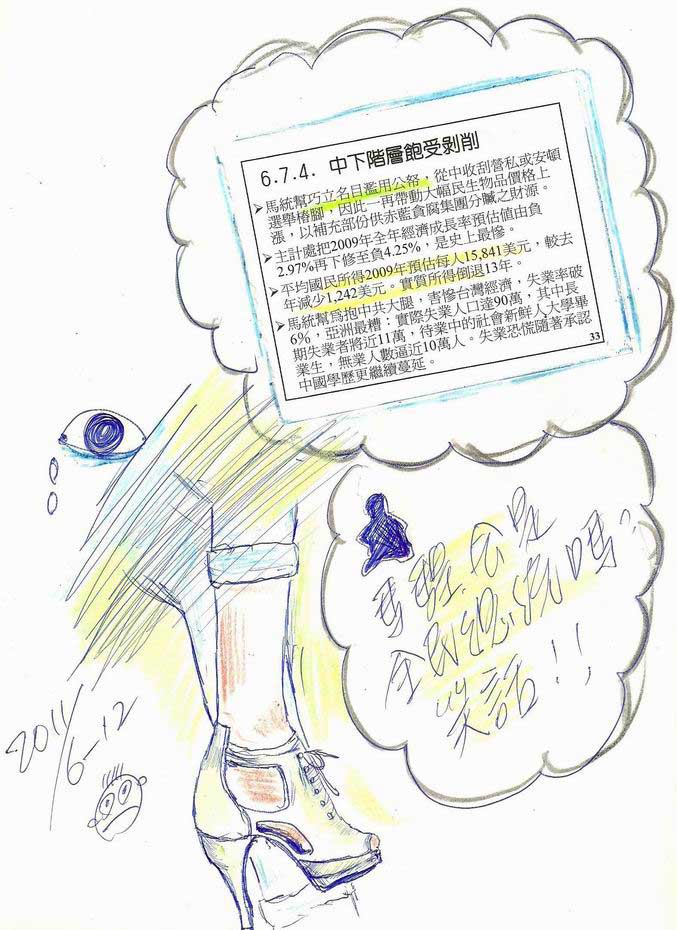 6.7.4. 中下階層飽受剝削
➢馬統幫巧立名目濫用公帑，從中收刮營私或安頓
選舉樁腳，因此一再帶動大幅民生物品價格上
漲，以補充部份供赤藍貪腐集團分贓之財源。
➢主計處把2009年全年經濟成長率預估值由負
2.97%再下修至負4.25%，是史上最慘。
➢平均國民所得2009年預估每人15,841美元，較去
年減少1,242美元。實質所得倒退13年。
➢馬統幫為抱中共大腿，害慘台灣經濟，失業率破
6%，亞洲最糟：實際失業人口達90萬，其中長
期失業者將近11萬，待業中的社會新鮮人大學畢
業生，無業人數逼近10萬人。失業恐慌隨著承認
中國學歷更繼續蔓延。
33
全民總統嗎?
笑話!!
2011/6-12